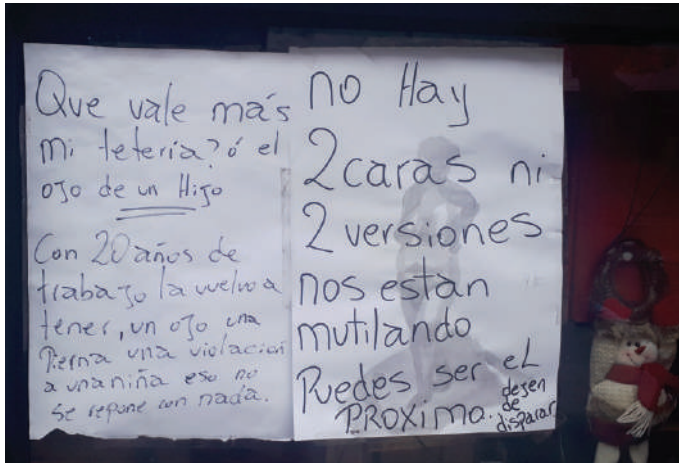 Que vale más
mi tetería? ó el
ojo de un Hijo
Con 20 años de
trabajo la vuelvo a
tener, un ojo una
Pierna una violación
a una niña eso no
se repone con nada.
no Hay
2 caras ni
2 versiones
nos estan
mutilando
Puedes ser el
PROXIMO.
dejen
de
disparar